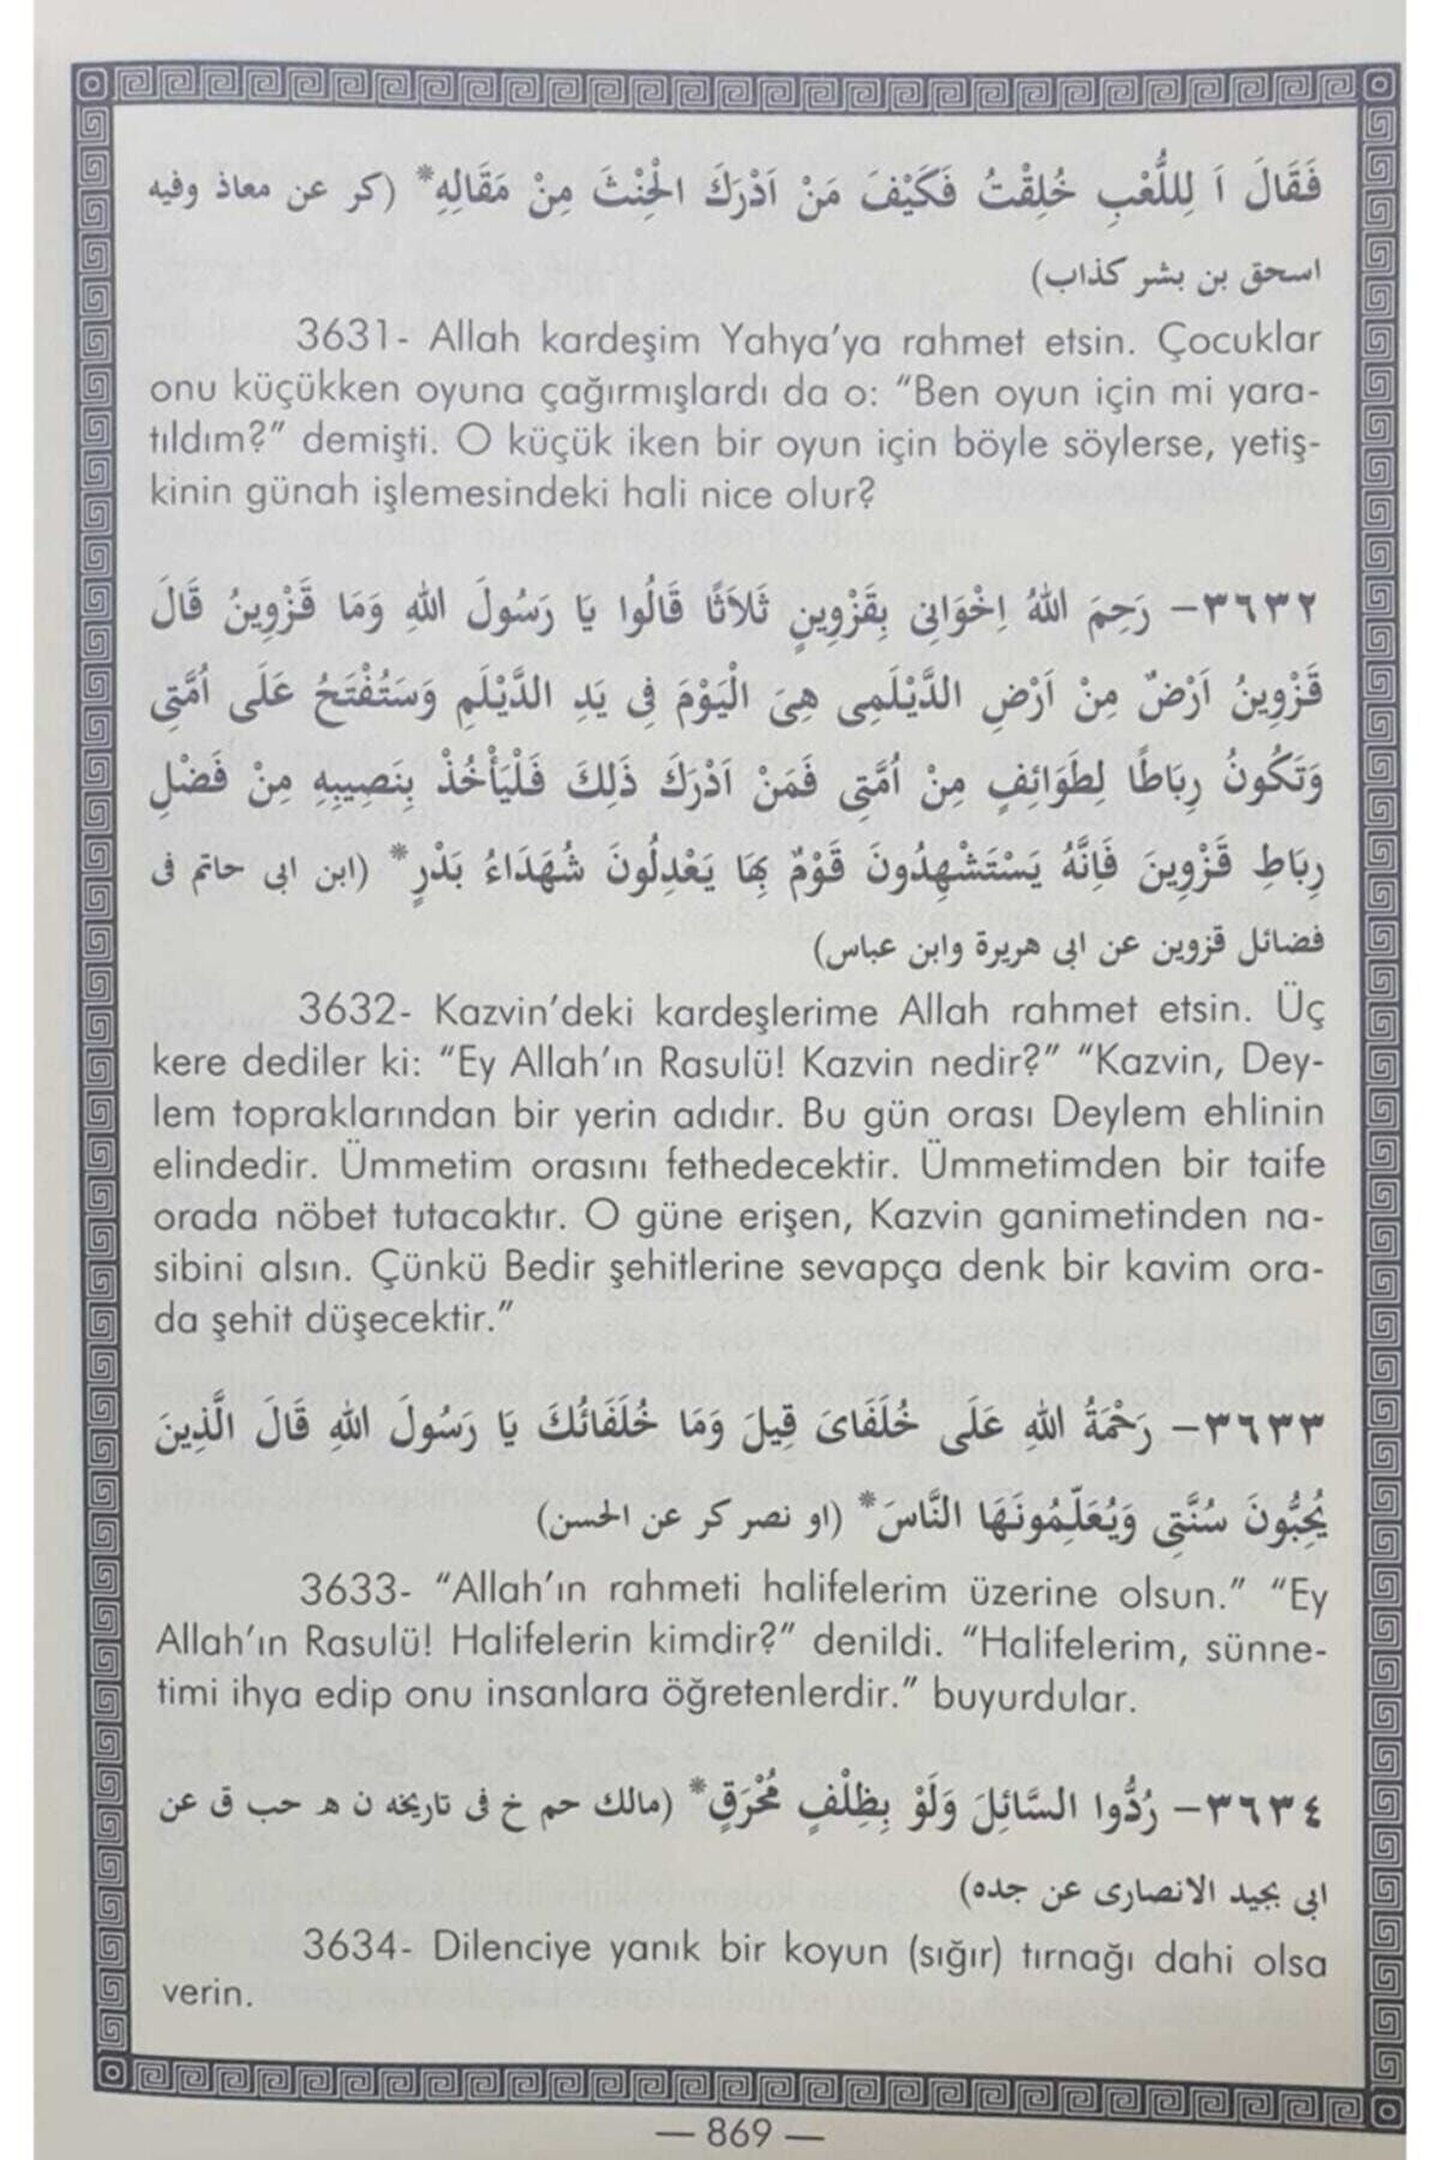 فَقَالَ اَ لِللُّعْبِ خُلِقْتُ فَكَيْفَ مَنْ اَدْرَكَ الْحِنْثَ مِنْ مَقَالِهِ* (كر عن معاذ وفيه
اسحق بن بشر كذاب)
3631- Allah kardeşim Yahya’ya rahmet etsin. Çocuklar
onu küçükken oyuna çağırmışlardı da o: “Ben oyun için mi yara-
tıldım?” demişti. O küçük iken bir oyun için böyle söylerse, yetiş-
kinin günah işlemesindeki hali nice olur?
٣٦٣٢- رَحِمَ اللّٰهُ اِخْوَانِى بِقَزْوِينٍ ثَلاَثًا قَالُوا يَا رَسُولَ اللّٰهِ وَمَا قَزْوِينُ قَالَ
قَزْوِينُ اَرْضٌ مِنْ اَرْضِ الدَّيْلَمِى هِىَ الْيَوْمَ فِى يَدِ الدَّيْلَمِ وَسَتُفْتَحُ عَلَى اُمَّتِى
وَتَكُونُ رِبَاطًا لِطَوَائِفٍ مِنْ اُمَّتِى فَمَنْ اَدْرَكَ ذَلِكَ فَلْيَأْخُذْ بِنَصِيبِهِ مِنْ فَضْلِ
رِبَاطِ قَزْوِينَ فَاِنَّهُ يَسْتَشْهِدُونَ قَوْمٌ بِهَا يَعْدِلُونَ شُهَدَاءُ بَدْرٍ* (ابن ابى حاتم فى
فضائل قزوين عن ابى هريرة وابن عباس)
3632- Kazvin’deki kardeşlerime Allah rahmet etsin. Üç
kere dediler ki: “Ey Allah’ın Rasulü! Kazvin nedir?” “Kazvin, Dey-
lem topraklarından bir yerin adıdır. Bu gün orası Deylem ehlinin
elindedir. Ümmetim orasını fethedecektir. Ümmetimden bir taife
orada nöbet tutacaktır. O güne erişen, Kazvin ganimetinden na-
sibini alsın. Çünkü Bedir şehitlerine sevapça denk bir kavim ora-
da şehit düşecektir.”
٣٦٣٣- رَحْمَةُ اللّٰهِ عَلَى خُلَفَاىَ قِيلَ وَمَا خُلَفَائُكَ يَا رَسُولَ اللّٰهِ قَالَ الَّذِينَ
يُحِبُّونَ سُنَّتِى وَيُعَلِّمُونَهَا النَّاسَ* (او نصر كر عن الحسن)
3633- “Allah’ın rahmeti halifelerim üzerine olsun.” “Ey
Allah’ın Rasulü! Halifelerin kimdir?” denildi. “Halifelerim, sünne-
timi ihya edip onu insanlara öğretenlerdir.” buyurdular.
٣٦٣٤- رُدُّوا السَّائِلَ وَلَوْ بِظِلْفٍ مُحْرَقٍ* (مالك حم خ فى تاريخه ن هـ حب ق عن
ابى بجيد الانصارى عن جده)
3634- Dilenciye yanık bir koyun (sığır) tırnağı dahi olsa
verin.
— 869 —